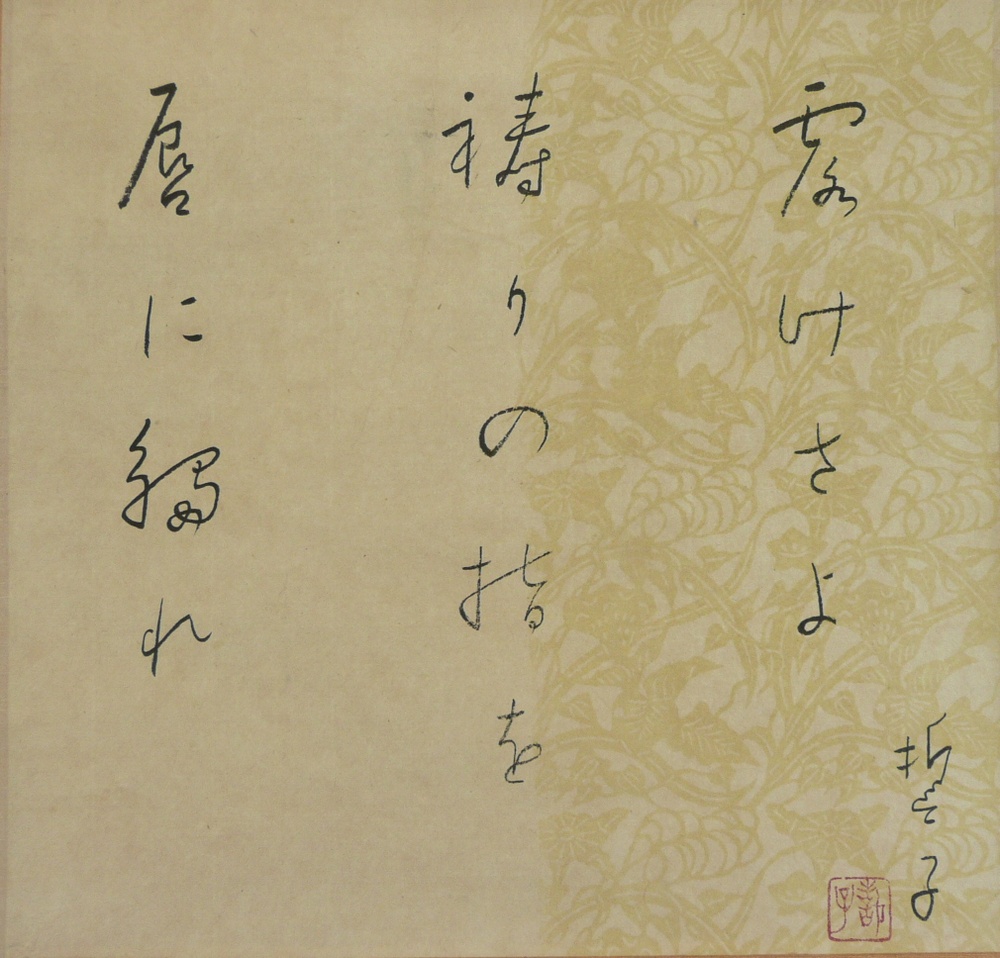 露けさよ
祷りの指を
唇に觸れ
誓子